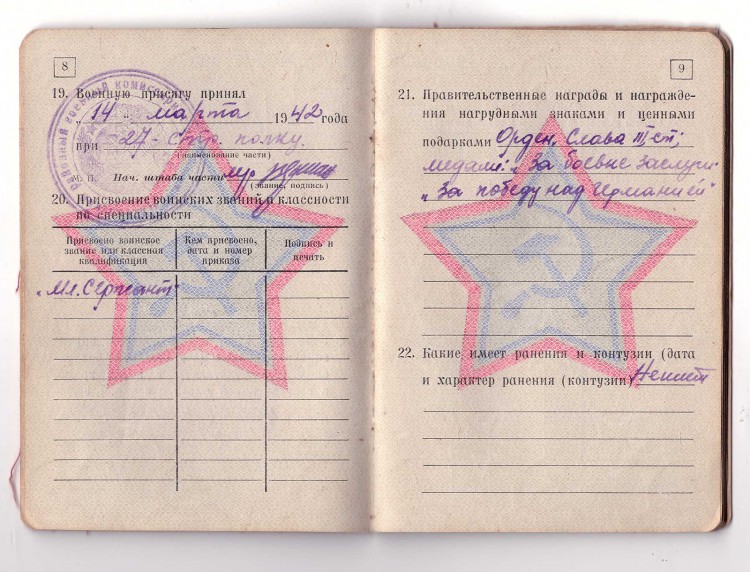 8
19. Военную присягу принял
14 марта 1942 года
при 27 - стр. полку.
(наименование части)
М. П. Нач. штаба части
(звание, подпись)
20. Присвоение воинских званий и классности
по специальности
Присвоено воинское звание или классная квалификация
Кем присвоено, дата и номер приказа
Подпись и печать
"Мл. Сержант"
9
21. Правительственные награды и награжде-
ния нагрудными знаками и ценными
подарками Орден, Слава III ст;
медали: "За боевые заслуги"
"За победу над Германией"
22. Какие имеет ранения и контузии (дата
и характер ранения (контузии)
районный военный комиссариат